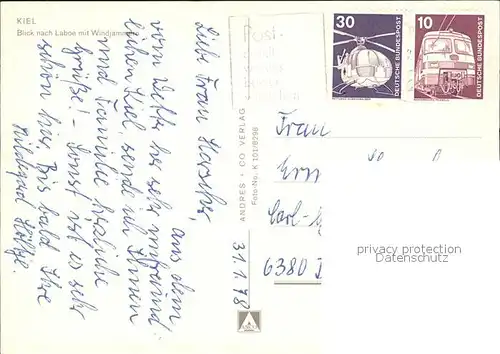 KIEL
Blick nach Laboe mit Windjammer
Liebe Frau
aus dem
vom Wetter her sehr unfreund-
lichen Kiel sende ich Ihnen
und Familie herzliche
Grüße! Sonst ist es sehr
schön hier. Bis bald Ihre
Hildegard
31.1.78
ANDRES + CO VERLAG
Foto-No.: K 101/8298
Post-
30
DEUTSCHE BUNDESPOST
10
DEUTSCHE BUNDESPOST
Frau
Carl-
6380
privacy protection
Datenschutz